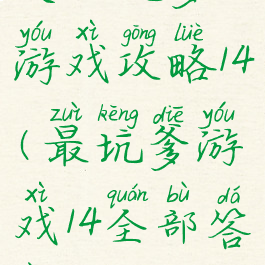 yóu xì gōng lüè
游戏攻略14
zuì kēng diē yóu
(最坑爹游
xì quán bù dá
戏14全部答